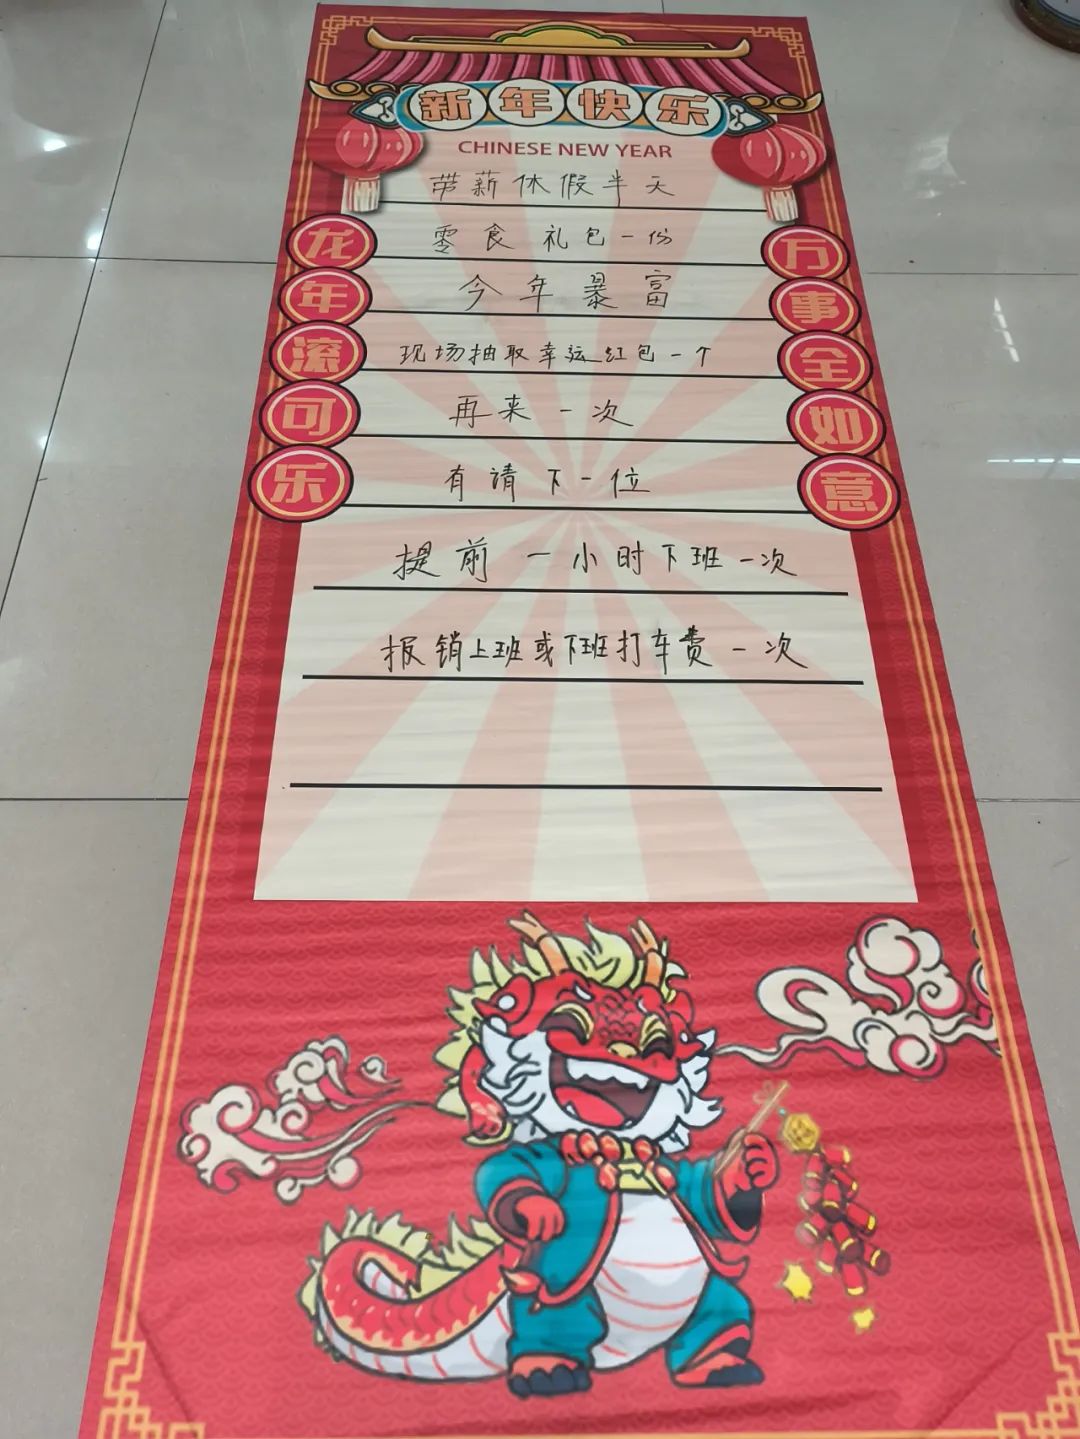 新年快乐
CHINESE NEW YEAR
带薪休假半天
零食礼包一份
今年暴富
现场抽取幸运红包一个
再来一次
有请下一位
提前一小时下班一次
报销上班或下班打车费一次
龙年滚可乐
万事全如意